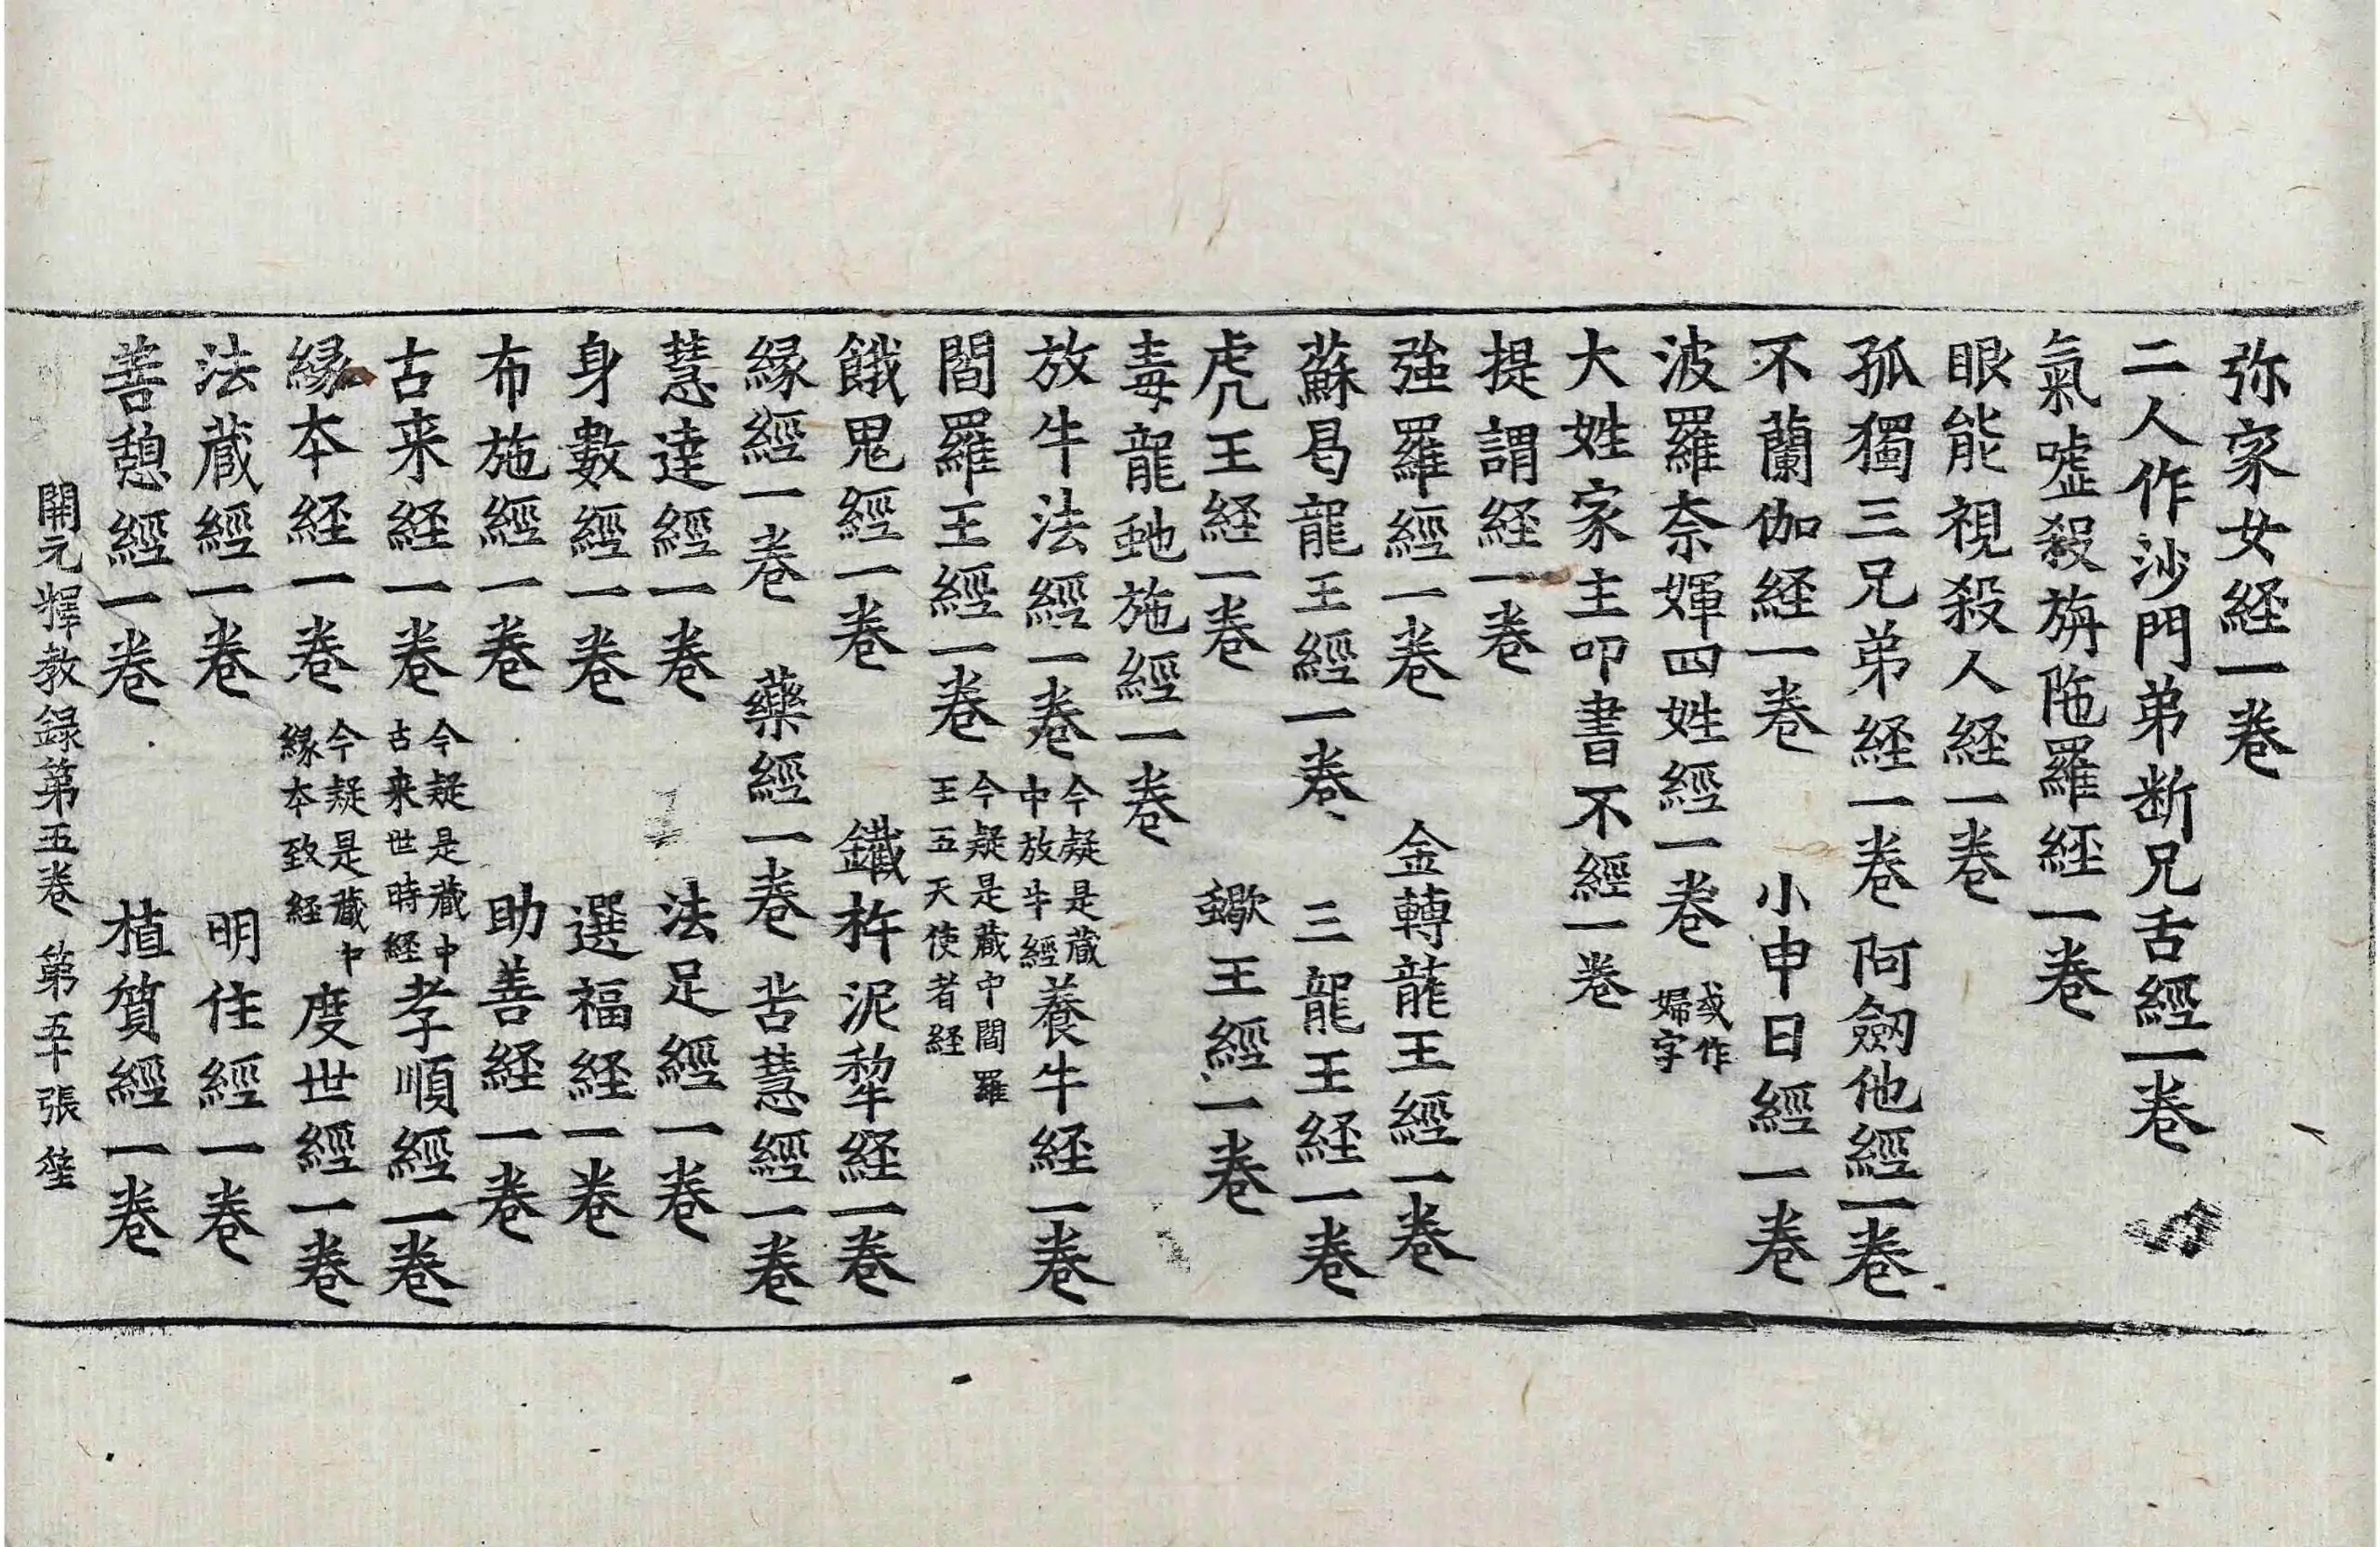 弥家女経一卷
二人作沙門弟断兄舌經一卷
氣噓殺旃陁羅経一卷
眼能視殺人経一卷
孤獨三兄弟経一卷 阿劒他經一卷
不蘭伽経一卷 小申日經一卷
波羅奈媈四姓經一卷 或作婦字
大姓家主叩書不經一卷
提謂経一卷
強羅經一卷 金轉龍王經一卷
蘇曷龍王經一卷 三龍王経一卷
虎王経一卷 蠍王經一卷
毒龍虵施經一卷
放牛法經一卷 今疑是藏中放牛經 養牛経一卷
閻羅王經一卷 今疑是藏中閻羅王五天使者経
餓鬼經一卷 鐵杵泥犂経一卷
緣經一卷 藥經一卷 苦慧經一卷
慧達經一卷 法足經一卷
身數經一卷 選福経一卷
布施經一卷 助善経一卷
古来経一卷 今疑是藏中古来世時経 孝順經一卷
縁本経一卷 今疑是藏中縁本致経 度世經一卷
法藏經一卷 明住經一卷
善憩經一卷 植質經一卷
開元釋教録第五卷 第五十張